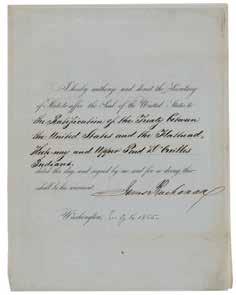 I hereby authorize and direct the Secretary
of State to affix the Seal of the United States to
the Ratification of the Treaty between
the United States and the Flathead,
Koo-nay and Upper Pend d'Oreilles
Indians,
dated this day, and signed by me and for so doing this
shall be his warrant.
James Buchanan
Washington,